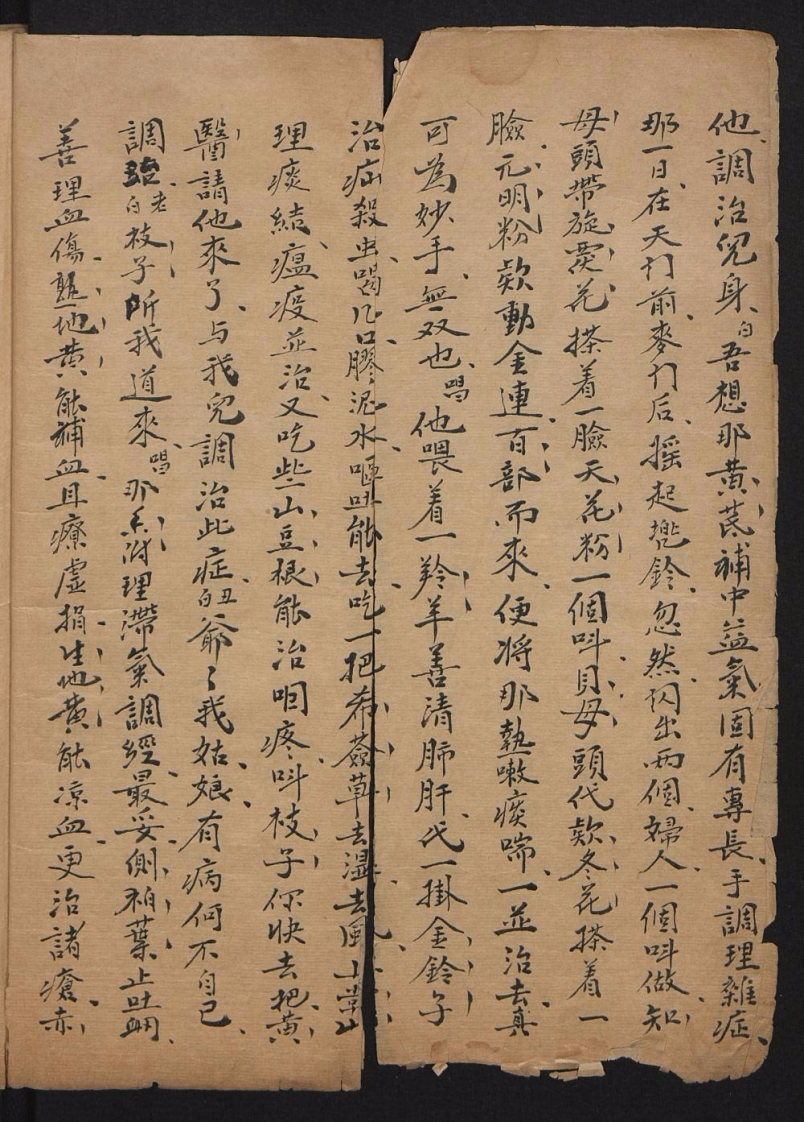 他調治兒身白吾想那黃芪補中益氣固有專長手調理雜症
那一日在天门前麥门后摇起兠鈴忽然闪出两個婦人一個呌做知
母頭帶旋覆花搽着一臉天花粉一個呌貝母頭代欵冬花搽着一
臉元明粉欵動金連百部而來便将那熱嗽痰喘一並治去真
可為妙手無双也唱他喂着一羚羊善清肺肝氏一掛金鈴子
治疝殺虫喝几口膠泥水嘔吐能去吃一把希薟草去濕去風
理痰結瘟疫並治又吃些山豆根能治咽疼呌枝子你快去把黃
醫請他來了与我兒調治此症丑白爺了我姑娘有病何不自已
調治老白枝子所我道來唱那香附理滯氣調經最妥側柏葉止吐衄
善理血傷熟地黃能補血且療虛損生地黃能凉血更治諸瘡赤